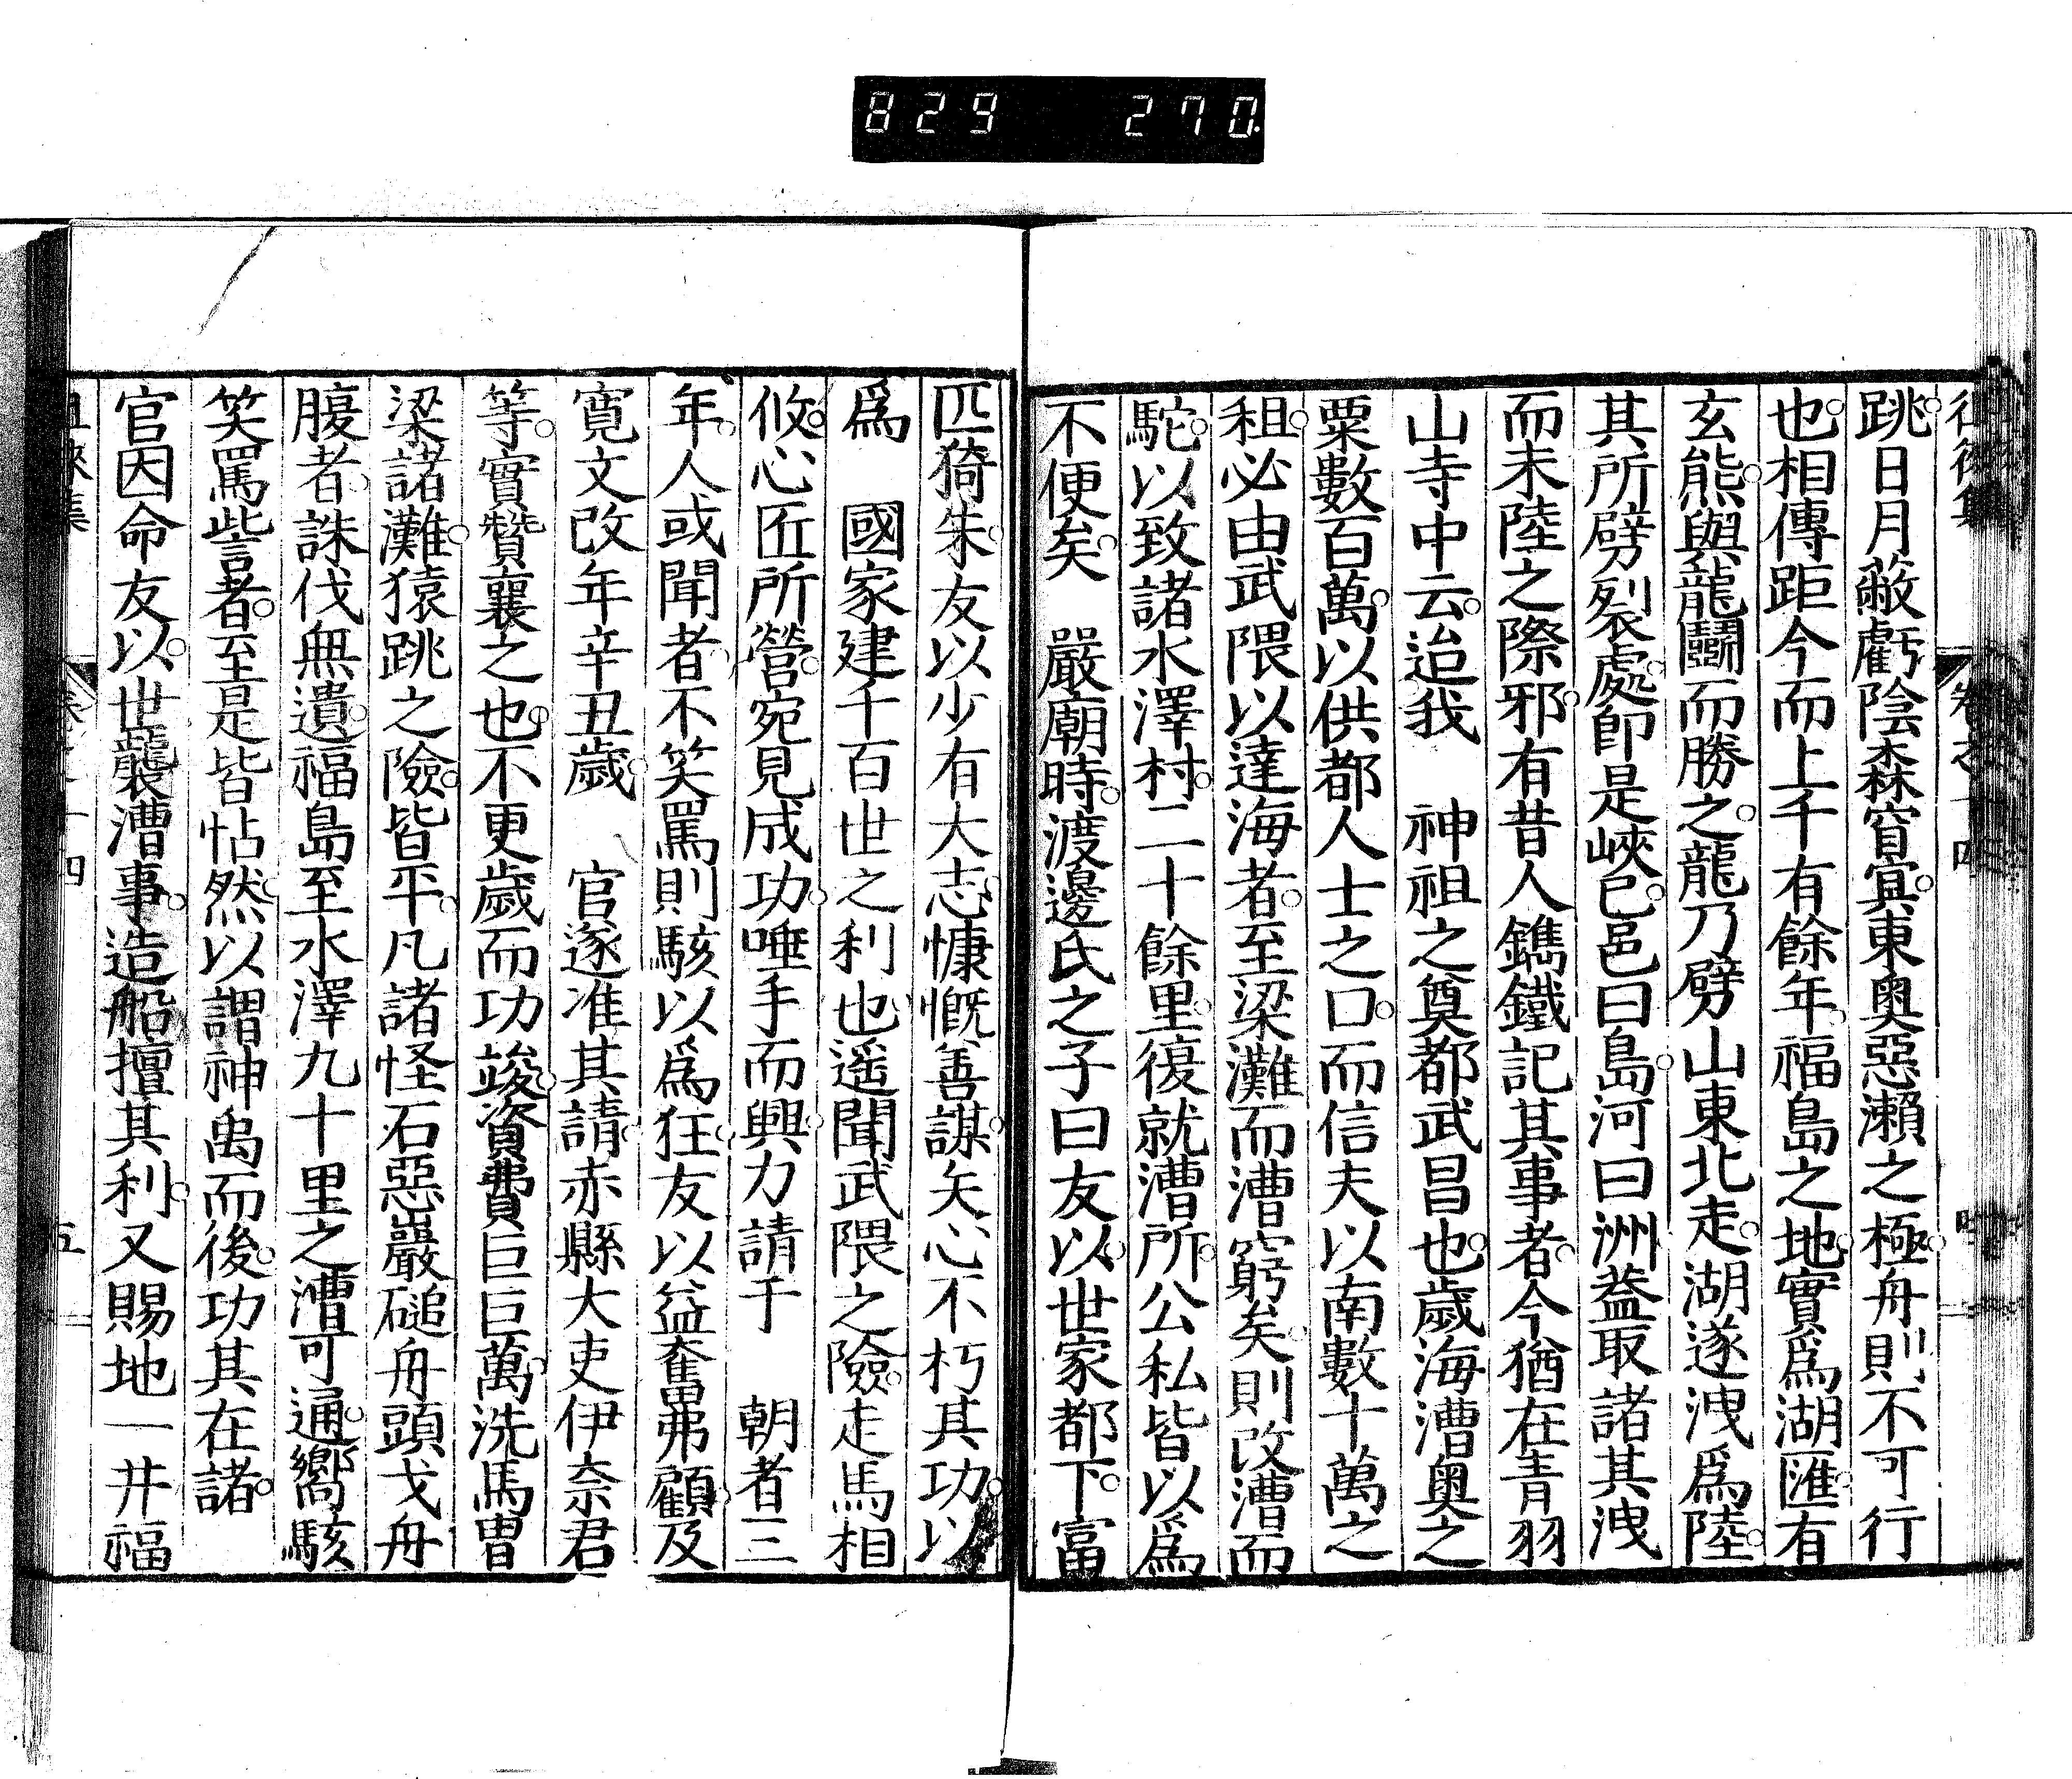 829 270
跳日月蔽虧陰森窅冥東奥惡瀨之極舟則不可行
也相傳距今而上千有餘年福島之地實爲湖匯有
玄熊與龍鬪而勝之龍乃劈山東北走湖遂洩爲陸
其所劈裂處即是峽已邑曰島河曰洲葢取諸其洩
而未陸之際邪有昔人鐫鐵記其事者今猶在青羽
山寺中云迨我　神祖之奠都武昌也歲海漕奥之
粟數百萬以供都人士之口而信夫以南數十萬之
租必由武隈以達海者至梁灘而漕窮矣則改漕而
駝以致諸水澤村二十餘里復就漕所公私皆以爲
不便矣　嚴廟時渡邊氏之子曰友以世家都下富
匹猗朱友以少有大志慷慨善謀矢心不朽其功以
爲　國家建千百世之利也遥聞武隈之險走馬相
攸心匠所營宛見成功唾手而興力請于　朝者三
年人或聞者不笑罵則駭以爲狂友以益奮弗顧及
寛文改年辛丑歲　官遂准其請赤縣大吏伊奈君
等實贊襄之也不更歲而功竣資費巨巨萬洗馬冑
梁諸灘猿跳之險皆平凡諸怪石惡巖磓舟頭戈舟
腹者誅伐無遺福島至水澤九十里之漕可通嚮駭
笑罵訾者至是皆帖然以謂神禹而後功其在諸
官因命友以世襲漕事造船擅其利又賜地一井福
四
五